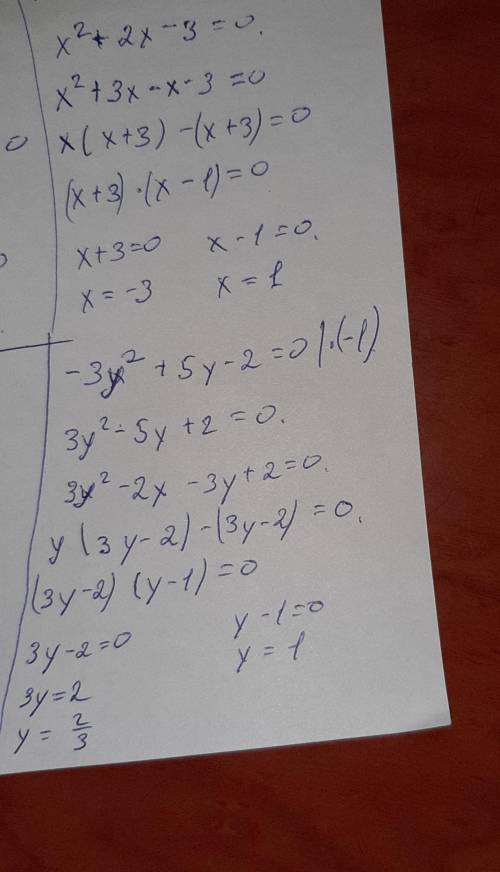 x² + 2x - 3 = 0.
x² + 3x - x - 3 = 0
0
x(x+3) - (x+3) = 0
(x+3)·(x-1) = 0
x+3=0 x-1=0.
x = -3 x = 1
-3y² + 5y - 2 = 0 |·(-1)
3y² - 5y + 2 = 0.
3y² - 2x - 3y + 2 = 0.
y(3y-2) - (3y-2) = 0.
(3y-2)(y-1) = 0
3y-2=0 y-1=0
3y=2 y = 1
y = 2/3